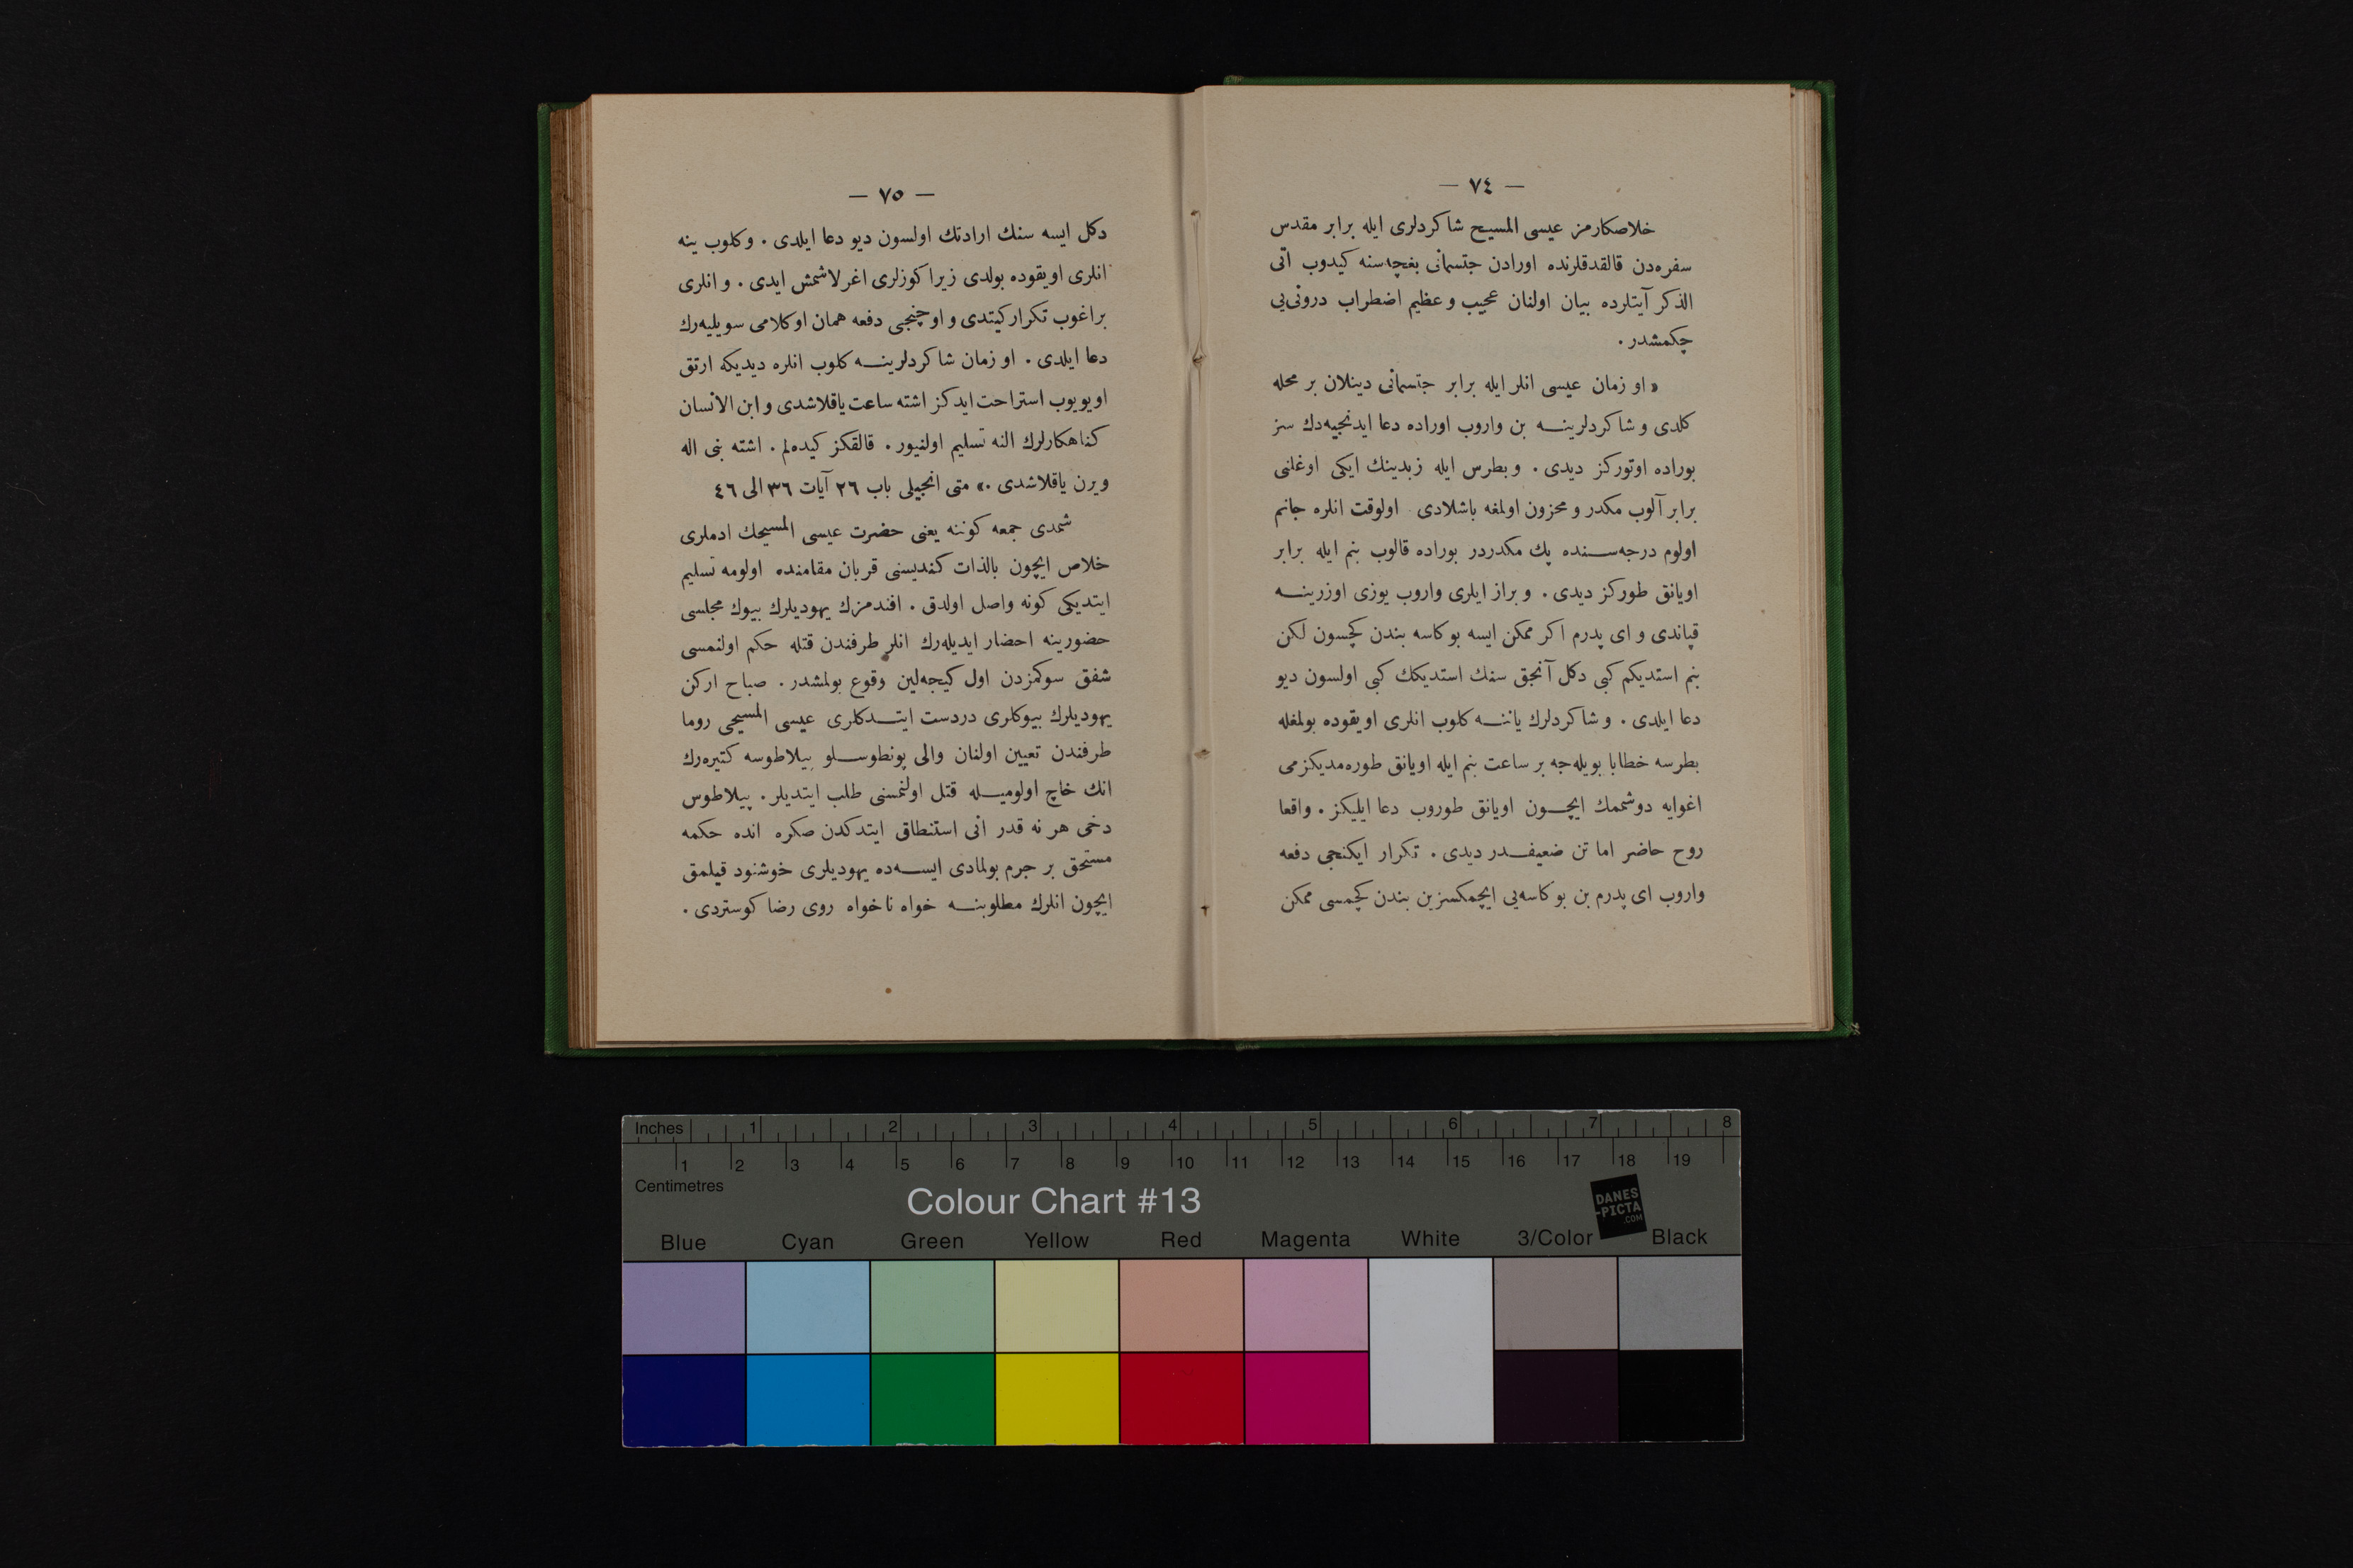 — ٧٤ —
خلاصكارمز عيسى المسيح شاكردلرى ايله برابر مقدس
سفره‌دن قالقدقلرنده اورادن جتسمانى بغچه‌سنه كيدوب آتى
الذكر آيتلرده بيان اولنان عجيب و عظيم اضطراب درونى‌يى
چكمشدر .
« او زمان عيسى انلر ايله برابر جتسمانى دينلان بر محله
كلدى و شاكردلرينه بن واروب اوراده دعا ايدنجيه‌دك سز
بوراده اوتوركز ديدى . و بطرس ايله زبدينك ايكى اوغلنى
برابر آلوب مكدر و محزون اولمغه باشلادى . اولوقت انلره جانم
اولوم درجه‌سنده پك مكدردر بوراده قالوب بنم ايله برابر
اويانق طوركز ديدى . و براز ايلرى واروب يوزى اوزرينه
قپاندى و اى پدرم اكر ممكن ايسه بو كاسه بندن كچسون لكن
بنم استديكم كبى دكل آنجق سنك استديكك كبى اولسون ديو
دعا ايلدى . و شاكردلرك ياننه كلوب انلرى اويقوده بولمغله
بطرسه خطابا بويله‌جه بر ساعت بنم ايله اويانق طوره‌مديكزمى
اغوايه دوشممك ايچون اويانق طوروب دعا ايليكز . واقعا
روح حاضر اما تن ضعيفدر ديدى . تكرار ايكنجى دفعه
واروب اى پدرم بن بو كاسه‌يى ايچمكسزين بندن كچمسى ممكن
— ٧٥ —
دكل ايسه سنك ارادتك اولسون ديو دعا ايلدى . و كلوب ينه
انلرى اويقوده بولدى زيرا كوزلرى اغرلاشمش ايدى . و انلرى
براغوب تكرار كيتدى و اوچنجى دفعه همان او كلامى سويليه‌رك
دعا ايلدى . او زمان شاكردلرينه كلوب انلره ديديكه ارتق
اويويوب استراحت ايدكز اشته ساعت ياقلاشدى و ابن الانسان
كناهكارلرك النه تسليم اولنيور . قالقكز كيده‌لم . اشته بنى اله
ويرن ياقلاشدى . » متى انجيلى باب ٢٦ آيات ٣٦ الى ٤٦
شمدى جمعه كوننه يعنى حضرت عيسى المسيحك ادملرى
خلاص ايچون بالذات كنديسنى قربان مقامنده اولومه تسليم
ايتديكى كونه واصل اولدق . افندمزك يهوديلرك بيوك مجلسى
حضورينه احضار ايديله‌رك انلر طرفندن قتله حكم اولنمسى
شفق سوكمزدن اول كيجه‌لين وقوع بولمشدر . صباح اركن
يهوديلرك بيوكلرى دردست ايتدكلرى عيسى المسيحى روما
طرفندن تعيين اولنان والى پونطوسلو پيلاطوسه كتيره‌رك
انك خاچ اولوميله قتل اولنمسنى طلب ايتديلر . پيلاطوس
دخى هر نه قدر انى استنطاق ايتدكدن صكره انده حكمه
مستحق بر جرم بولمادى ايسه‌ده يهوديلرى خوشنود قيلمق
ايچون انلرك مطلوبنه خواه ناخواه روى رضا كوستردى .
Inches 1 2 3 4 5 6 7 8
1 2 3 4 5 6 7 8 9 10 11 12 13 14 15 16 17 18 19
Centimetres
Colour Chart #13
DANES
-PICTA
.COM
Blue Cyan Green Yellow Red Magenta White 3/Color Black